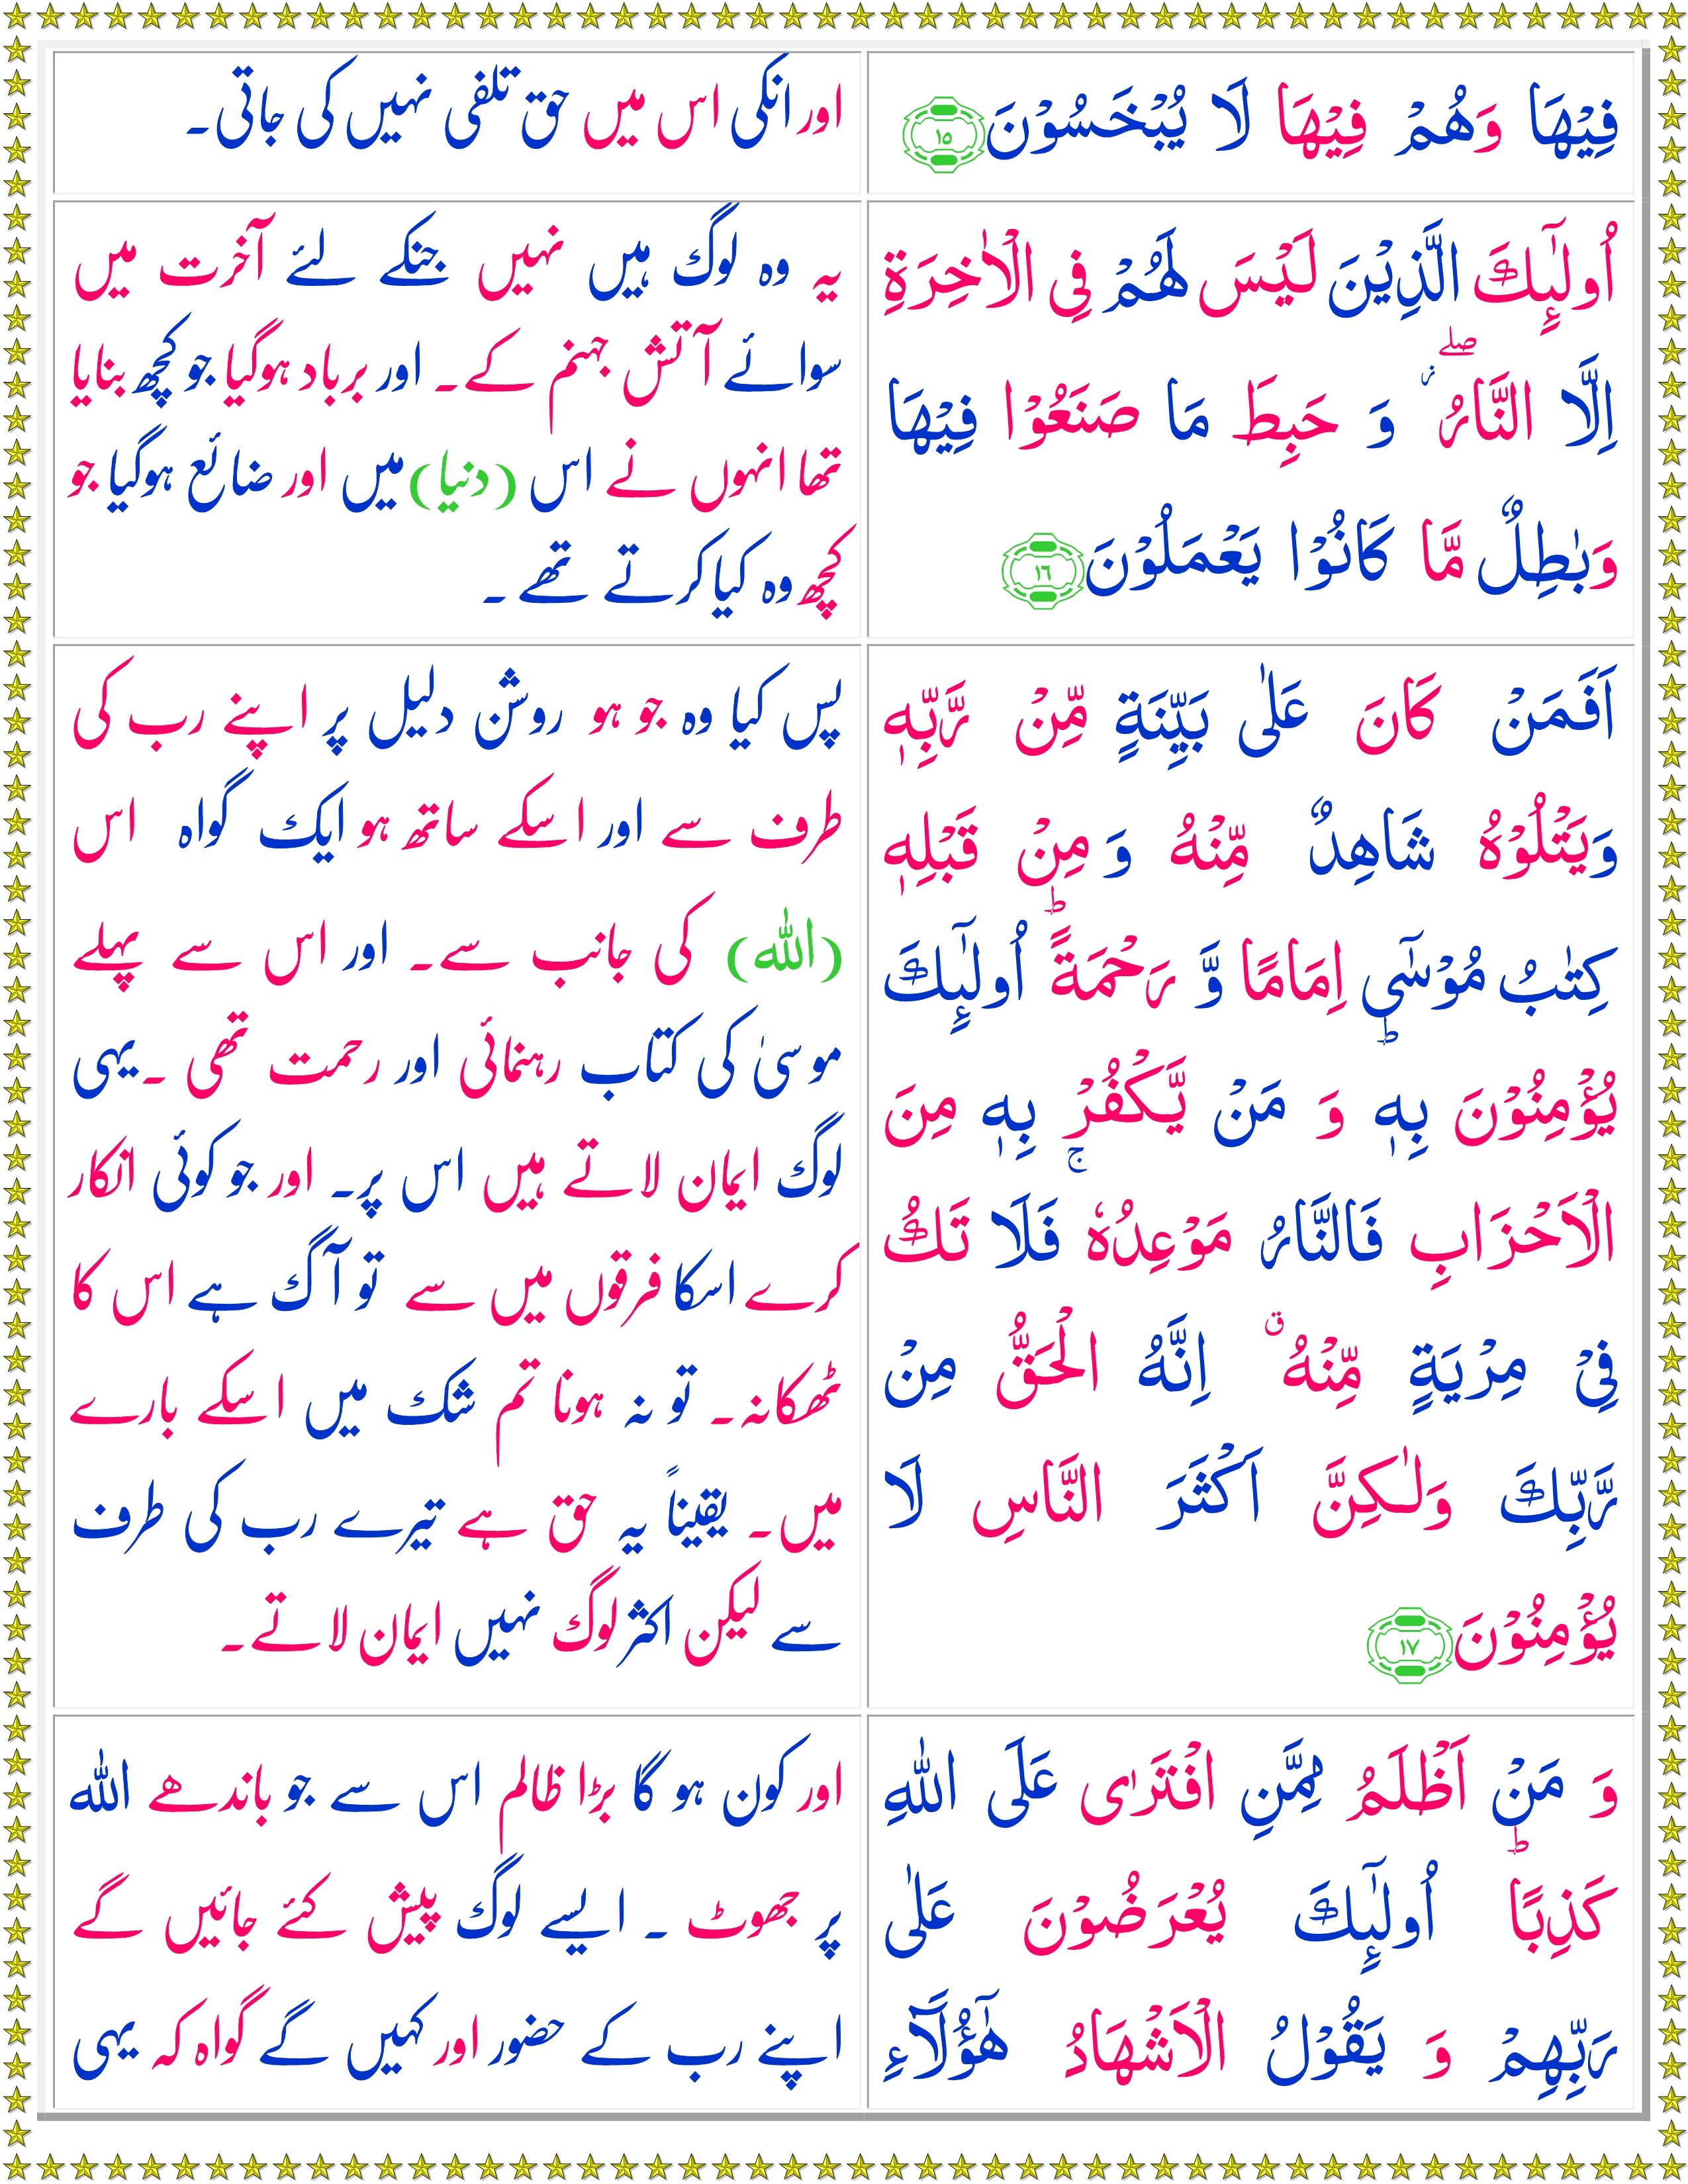 فِيْهَا وَهُمْ فِيْهَا لَا يُبْخَسُوْنَ ١٥
اور انکی اس میں حق تلفی نہیں کی جاتی۔
اُولٰٓئِكَ الَّذِيْنَ لَيْسَ لَهُمْ فِى الْاٰخِرَةِ
اِلَّا النَّارُ ۖ ز وَ حَبِطَ مَا صَنَعُوْا فِيْهَا
وَبٰطِلٌ مَّا كَانُوْا يَعْمَلُوْنَ ١٦
یہ وہ لوگ ہیں نہیں جنکے لئے آخرت میں
سوائے آتش جہنم کے۔ اور برباد ہوگیا جو کچھ بنایا
تھا انہوں نے اس (دنیا) میں اور ضائع ہوگیا جو
کچھ وہ کیا کرتے تھے۔
اَفَمَنْ كَانَ عَلٰى بَيِّنَةٍ مِّنْ رَّبِّهٖ
وَيَتْلُوْهُ شَاهِدٌ مِّنْهُ وَ مِنْ قَبْلِهٖ
كِتٰبُ مُوْسٰٓى اِمَامًا وَّ رَحْمَةً ؕ اُولٰٓئِكَ
يُؤْمِنُوْنَ بِهٖ ؕ وَ مَنْ يَّكْفُرْ بِهٖ مِنَ
الْاَحْزَابِ فَالنَّارُ مَوْعِدُهٗ ۚ فَلَا تَكُ
فِىْ مِرْيَةٍ مِّنْهُ ۗ اِنَّهُ الْحَقُّ مِنْ
رَّبِّكَ وَلٰـكِنَّ اَكْثَرَ النَّاسِ لَا
يُؤْمِنُوْنَ ١٧
پس کیا وہ جو ہو روشن دلیل پر اپنے رب کی
طرف سے اور اسکے ساتھ ہو ایک گواہ اس
(اللہ) کی جانب سے۔ اور اس سے پہلے
موسیٰ کی کتاب رہنمائی اور رحمت تھی ۔ یہی
لوگ ایمان لاتے ہیں اس پر۔ اور جو کوئی انکار
کرے اسکا فرقوں میں سے تو آگ ہے اس کا
ٹھکانہ۔ تو نہ ہونا تم شک میں اسکے بارے
میں۔ یقیناً یہ حق ہے تیرے رب کی طرف
سے لیکن اکثر لوگ نہیں ایمان لاتے۔
وَ مَنْ اَظْلَمُ مِمَّنِ افْتَرٰى عَلَى اللّٰهِ
كَذِبًا ؕ اُولٰٓئِكَ يُعْرَضُوْنَ عَلٰى
رَبِّهِمْ وَ يَقُوْلُ الْاَشْهَادُ هٰٓؤُلَاۤءِ
اور کون ہو گا بڑا ظالم اس سے جو باندھے اللہ
پر جھوٹ ۔ ایسے لوگ پیش کئے جائیں گے
اپنے رب کے حضور اور کہیں گے گواہ کہ یہی